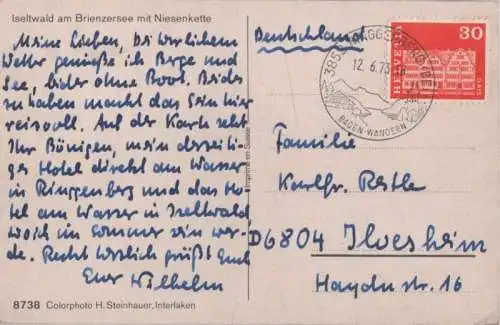 Iseltwald am Brienzersee mit Niesenkette
Meine Lieben, bei herrlichem
Wetter genieße ich Berge und
See, leider ohne Boot. Beides
zu haben macht das Sein hier
reizvoll. Auf der Karte seht
Ihr Bönigen, mein derzeiti-
ges Hotel direkt am Wasser
in Ringgenberg und das Ho-
tel am Wasser in Iseltwald
wo ich im Sommer sein wer-
de. Recht herzlich grüßt Euch
Euer Wilhelm
8738 Colorphoto H. Steinhauer, Interlaken
Imprimé en Suisse
Deutschland
3852 RINGGENBERG (BE)
12.6.73
BADEN-WANDERN
HELVETIA
30
Familie
Karlfr. Restle
D6804 Ilvesheim
Haydnstr. 16